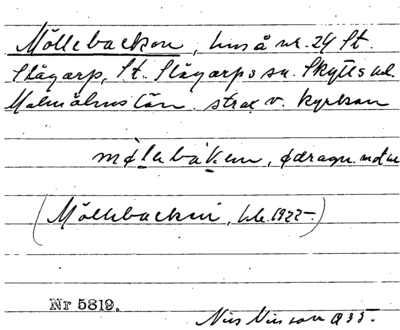 Möllebacken, hus å nr. 24 St.
Slågarp, St. Slågarps sn. Skytts hd.
Malmöhus län. strax v. kyrkan
(Möllebacken, hd. 1922-.)
Nr 5819.
Nils Nilsson 1935.